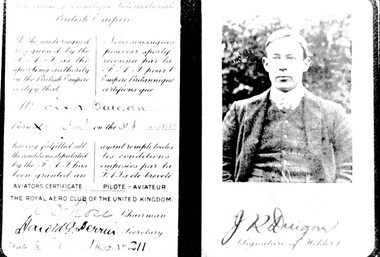 British Empire
We the undersigned
recognised by the
F.A.I. as the
sporting authority
in the British Empire
certify that
Nous soussignés
pouvoir sportif
reconnu par la
F.A.I. pour l'
Empire Britannique
certifions que
Born on the
having fulfilled all
the conditions stipulated
by the F.A.I. has
been granted an
ayant rempli toutes
les conditions
imposées par la
F.A.I. a été breveté
AVIATORS CERTIFICATE PILOTE-AVIATEUR.
THE ROYAL AERO CLUB OF THE UNITED KINGDOM
Chairman
Harold E. Perrin Secretary
J R Duigan
(Signature of Holder)